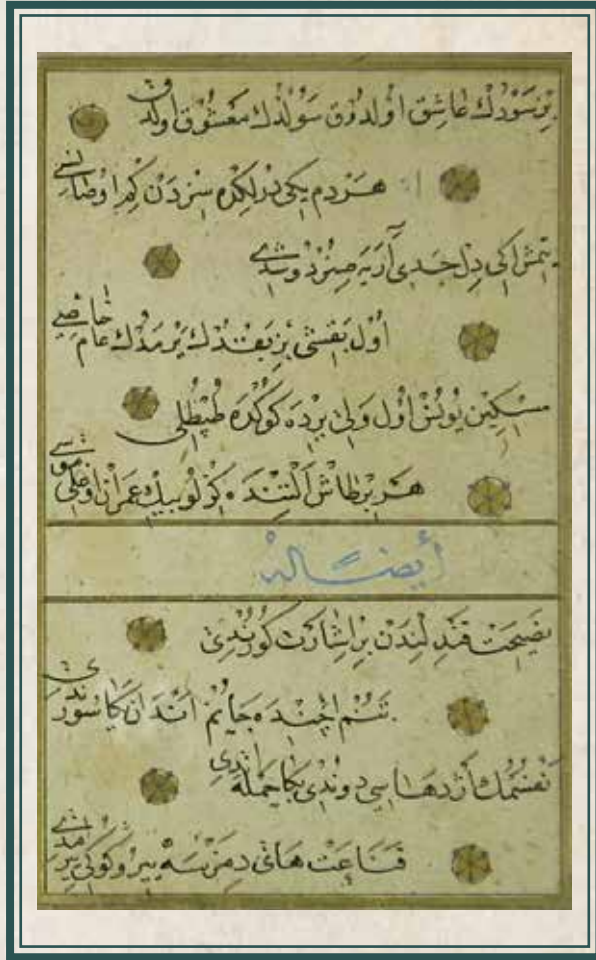 بز سودك عاشق اولدوق سولدك معشوق اولدق
هردم يكى درلكده سزدن كم اوصانسى
يتمش اكى دل جدى آريه صنر دوشدى
اول بقشى بز بقدك يرمدك عام خاصى
مسكين يونس اول ولى يرده كوكده طپطلى
هر بر طاش التنده كزلو بيك عمران اوغلى موسى
أيضًا له
نصيحت قندلندن بر اشارت كورندى
تنم اچنده جانم اندن اكا
نفسمك اژدهاسى دوندى بكا حمله اتدى
قناعت هاى دمزسه ييرو كوكى